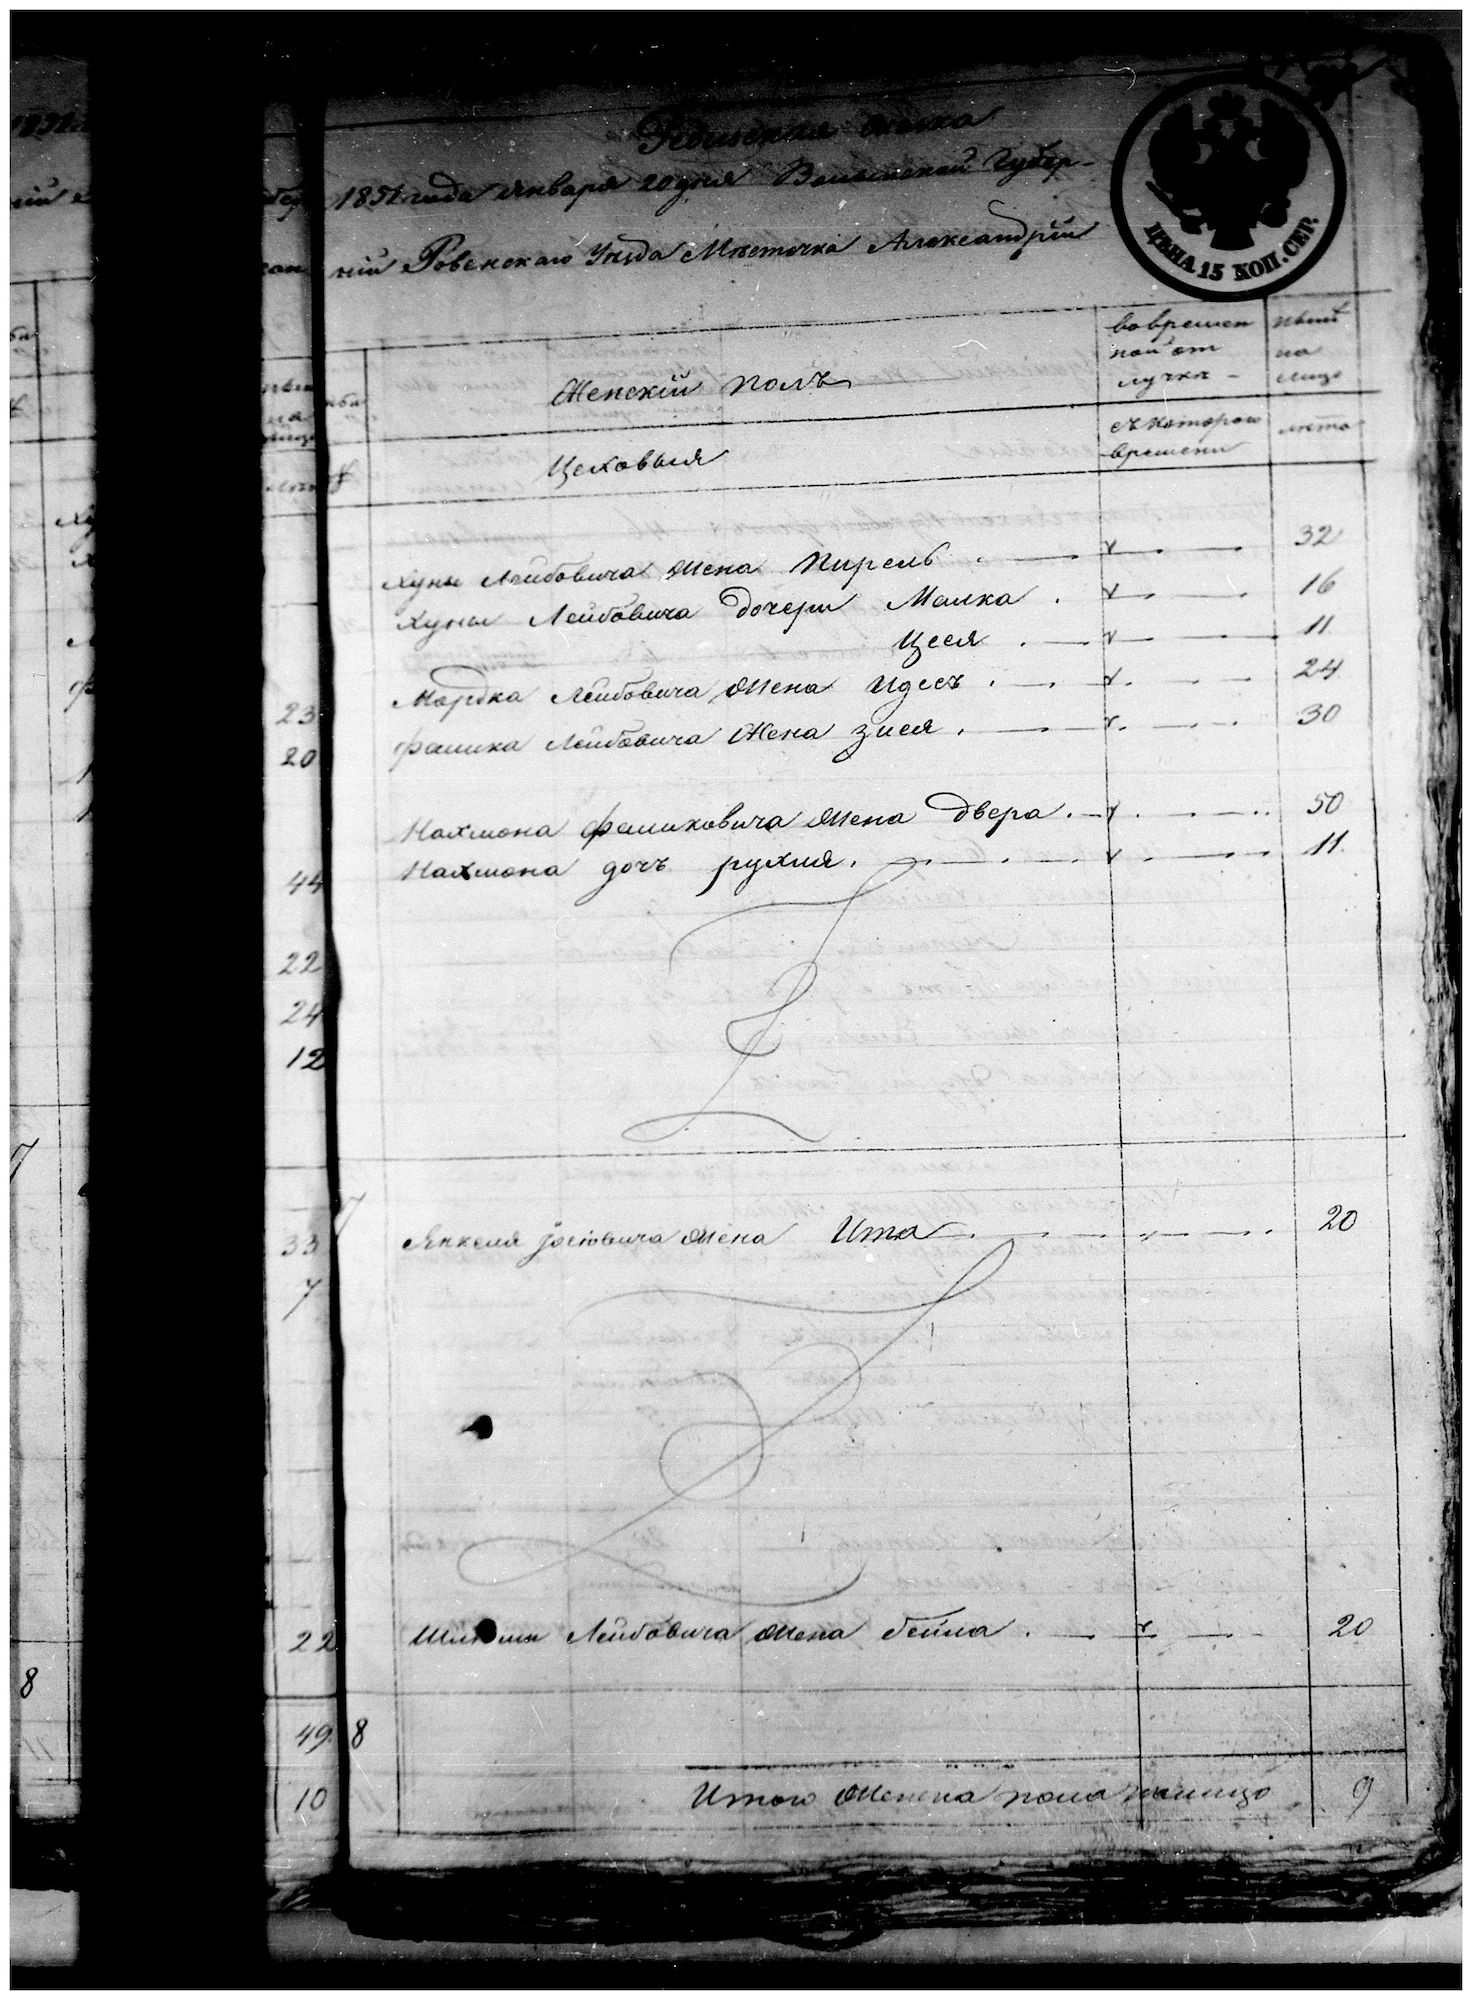 Ревизская сказка
1851 года января 20 дня Волынской Губер-
ній Ровенскаго Уезда Местечка Александріи
ЦѢНА 15 КОП. СЕР.
Женскій полъ
во времен
ной от
лучке
ныне
на
лицо
Цеховыя
съ которого
времени
лета
Хуны Лейбовича Жена Пирель 32
Хуны Лейбовича дочери Малка 16
Цеся 11
Мордка Лейбовича Жена Идесъ 24
23
Фалика Лейбовича Жена Зися 30
20
Нахмона Фаликовича Жена Двера 50
Нахмона дочъ рухля 11
44
22
24
12
7
Янкеля Іосіовича Жена Ита 20
33
7
Лейбовича Жена бейла 20
22
8
49 8
Итого Женска пола налицо 9
10